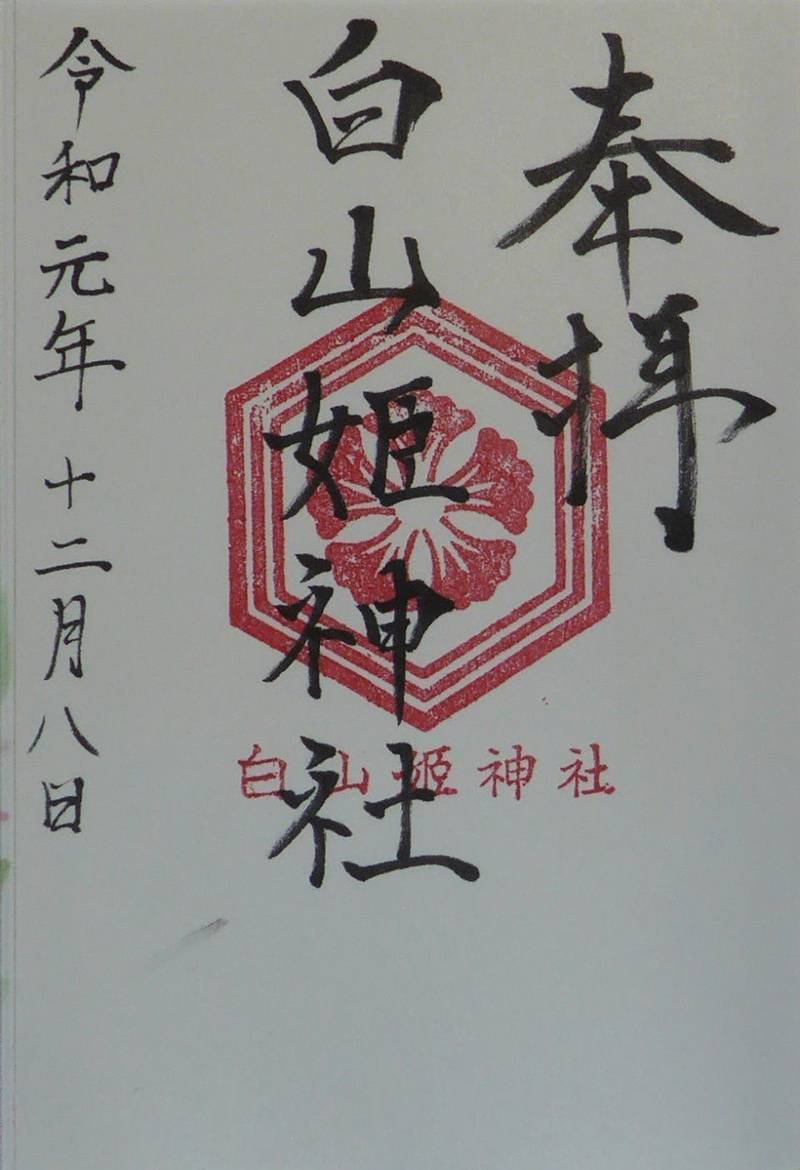 奉拝
白山姫神社
白山姫神社
令和元年 十二月八日